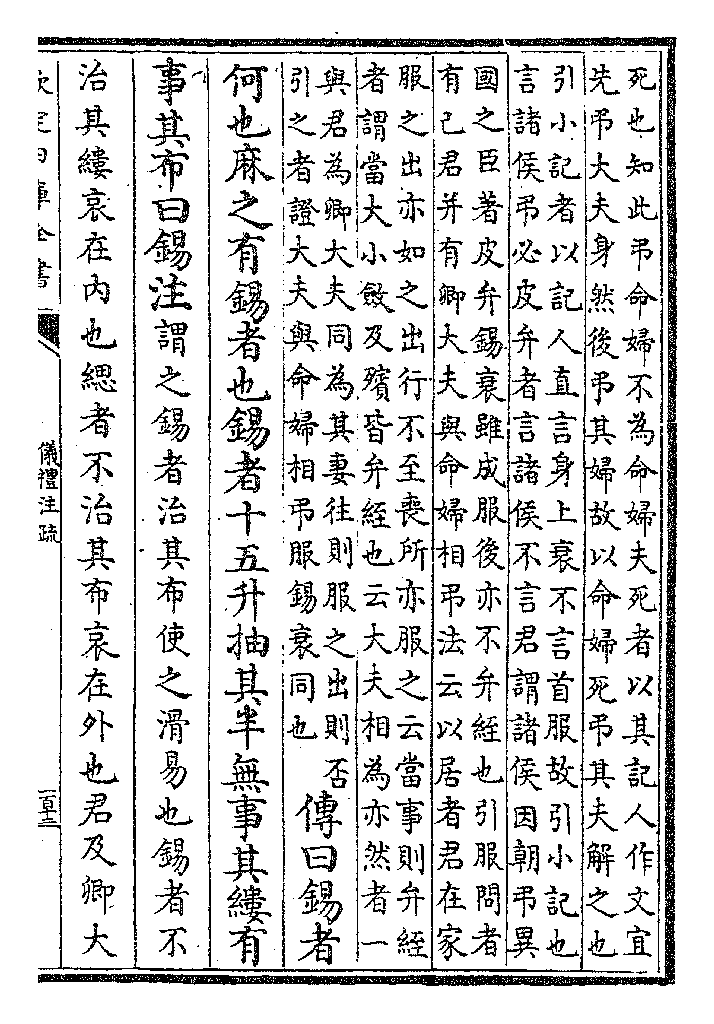 死也知此弔命婦不為命婦夫死者以其記人作文宜
先弔大夫身然後弔其婦故以命婦死弔其夫解之也
引小記者以記人直言身上衰不言首服故引小記也
言諸侯弔必皮弁者言諸侯不言君謂諸侯因朝弔異
國之臣著皮弁錫衰雖成服後亦不弁絰也引服問者
有己君并有卿大夫與命婦相弔法云以居者君在家
服之出亦如之出行不至喪所亦服之云當事則弁絰
者謂當大小斂及殯皆弁絰也云大夫相為亦然者一
與君為卿大夫同為其妻往則服之出則否
引之者證大夫與命婦相弔服錫衰同也
傳曰錫者
何也麻之有錫者也錫者十五升抽其半無事其縷有
事其布曰錫注謂之錫者治其布使之滑易也錫者不
治其縷哀在內也緦者不治其布哀在外也君及卿大
欽定四庫全書
儀禮注疏